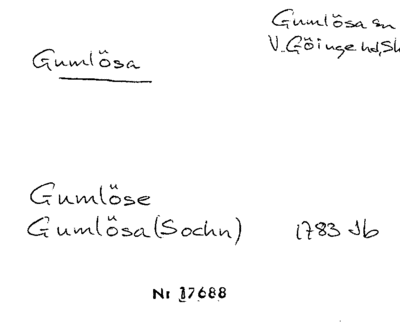 Gumlösa sn
V. Göinge hd, Sk
Gumlösa
Gumlöse
Gumlösa (Sochn) 1783 Jb
Nr 17688